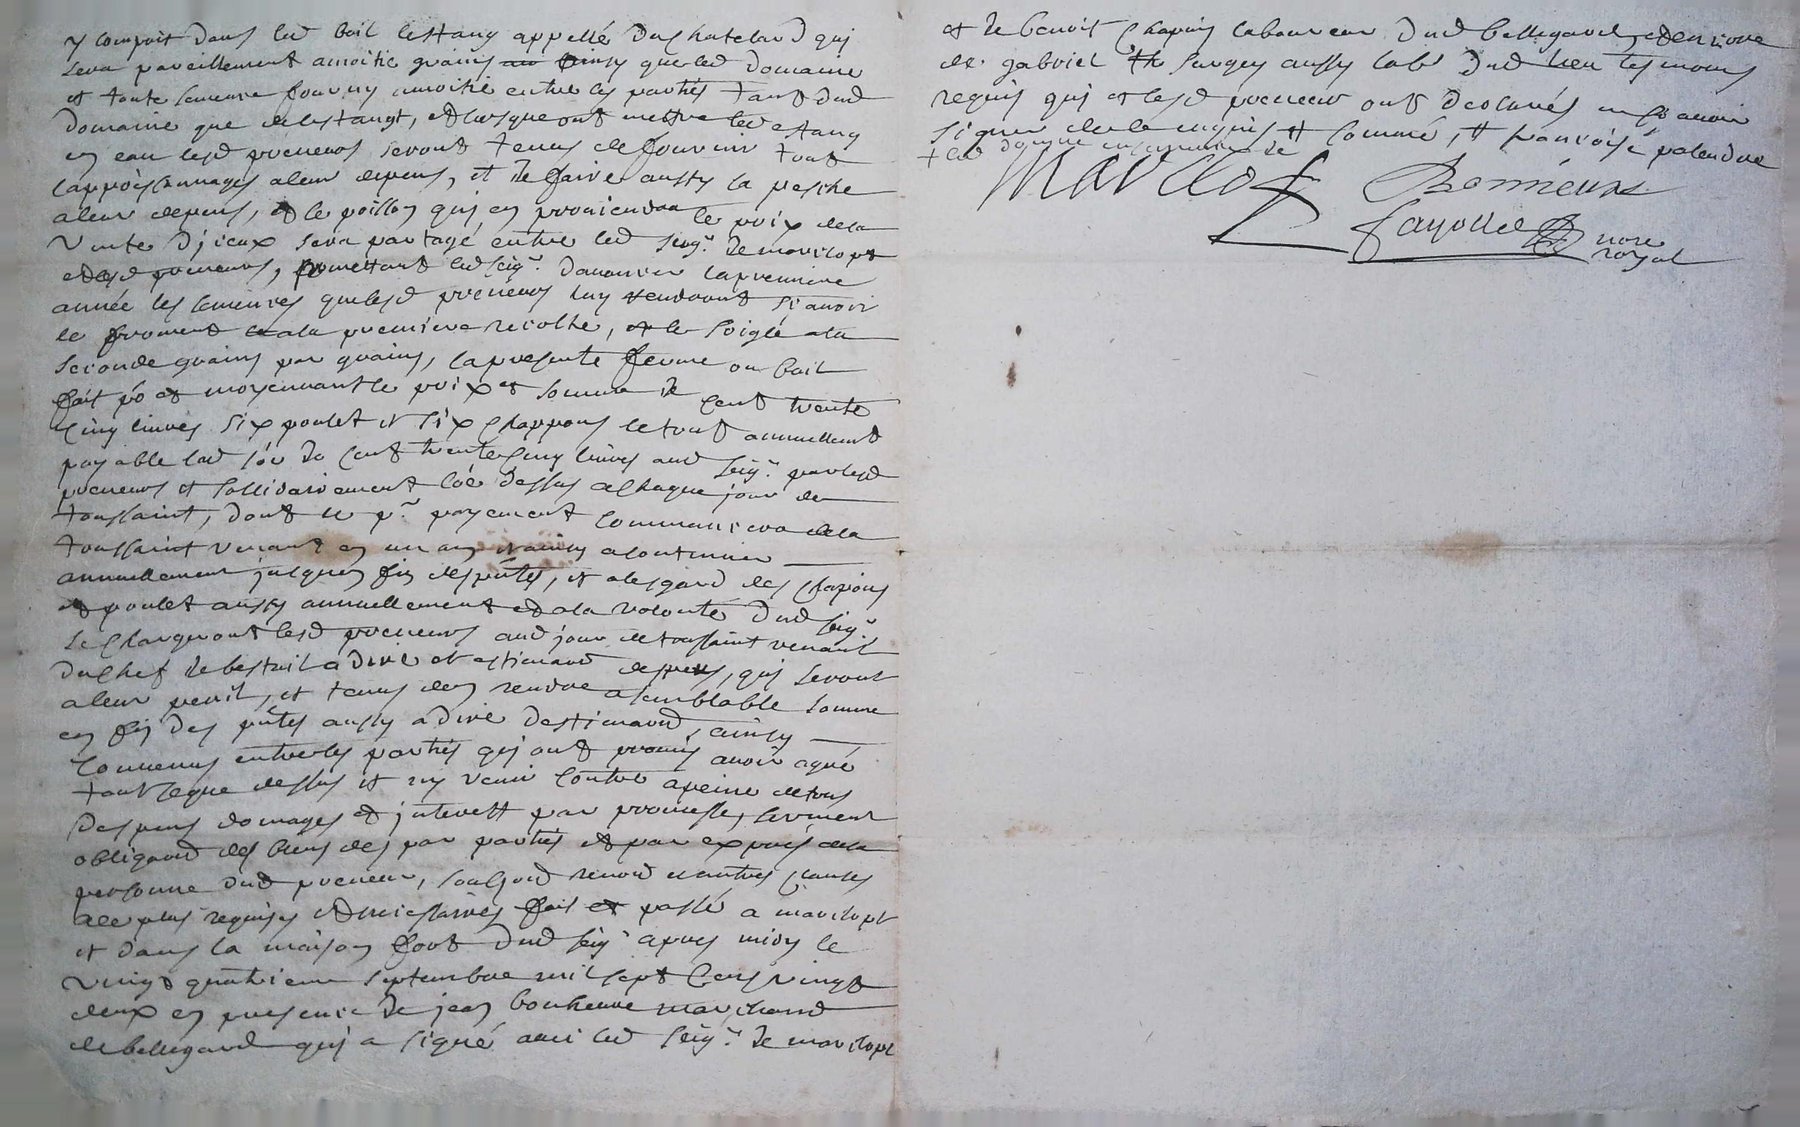 y compoit dans led bail lestang appellé du chatelard qui
sera pareillement amoitié grains ainsy que led domaine
et toute semence fourny amoitié entre les parties tant dud
domaine que de lestangt, et lorsque ont mettra led estang
en eau lesd preneurs seront tenus de fournir tout
lappoissonnages a leur depens, et de faire aussy la pesche
a leur depens, et le poisson qui en proviendra le prix de la
vente d'jceux sera partagé entre led seigr. de marclopt
et lesd preneurs, promettant led seigr. davancer lapremiere
année les semences que lesd preneurs luy rendront scavoir
le froment a la premiere recolte, et le soigle a la
seconde grains par grains, la presente ferme ou bail
fait po et moyennant le prix et somme de cent trente
cinq livres six poulet et six chappons le tout annuellement
payable lad so͞e de cent trente cinq livres aud seigr. par lesd
preneurs et sollidairement co͞e dessus a chaque jour de
toussaint, dont le pr. payement commancera de la
toussaint venant en un an et ainsy a continuer
annuellement jusques fin des p̄ntes, et a lesgard des chapons
et poulet aussy annuellement et a la volonté dud seigr.
se chargeront lesd preneurs aud jour de toussaint venant
du chef de bestail a dire et estimaōn desperts, qui seront
a leur peril, et tenus den rendre a semblable somme
en fin des p̄ntes aussy a dire destimaōn, ainsy
convenus entre les parties qui ont promis avoir agré
tout ceque dessus et ny venir contre a peine de tous
despens domages et jnterest par promesse, serment
obligaōn des biens des par parties et par exprés de la
personne dud preneur, renon et autres clauses
requises et necessaires fait et passé a marclopt
et dans la maison fort dud seigr apres midy le
vingt quatrieme septembre mil sept cens vingt
deux en presence de jean bonheure marchand
de bellegard qui a signé avec led seigr. de marclopt
et de benoit chapuis laboureur dud bellegard, et encore
de gabriel surgey aussy labr dud lieu tesmoins
requis qui et lesd preneur ont declarés ne scavoir
signer de ce enquis et sommé,
Marclopt Bonnieure
Fayolle nore
royal